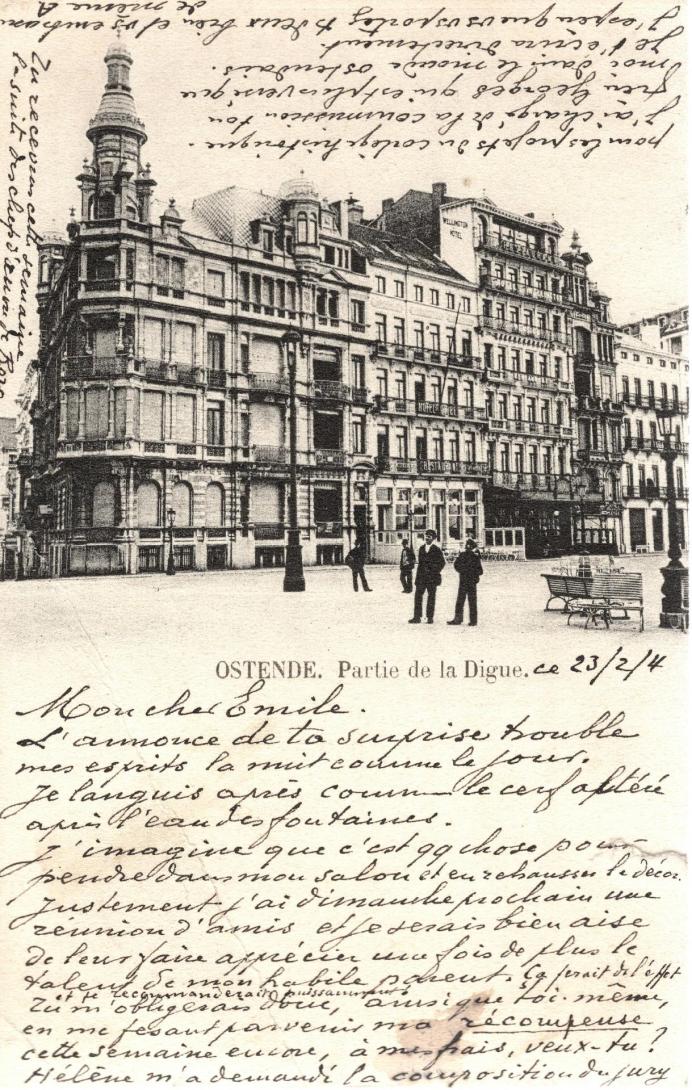 OSTENDE. Partie de la Digue. ce 23/2/4
Mon cher Emile.
L'annonce de ta surprise trouble
mes esprits la nuit comme le jour.
Je languis après comme le cerf altéré
après l'eau des fontaines.
J'imagine que c'est qq chose pour
pendre dans mon salon et en rehausser le décor.
Justement j'ai dimanche prochain une
réunion d'amis et je serais bien aise
de leur faire apprécier une fois de plus le
talent de mon habile parent. Ça ferait de l'effet
et te recommanderait puissamment
Tu m'obligerais donc, ainsi que toi-même,
en me fesant parvenir ma récompense
cette semaine encore, à mes frais, veux-tu?
Hélène m'a demandé la composition du jury
pour les projets du cortège historique.
J'ai chargé de la commission ton
Georges qui est plus versé que
moi dans le monde ostendais.
Je t'écrirai directement.
J'espère que vs vs portez ts deux bien et vs embrasse
de même A
Tu recevras cette semaine
la suite des chefs d'œuvre
WELLINGTON
HOTEL
HOTEL
RESTAURANT